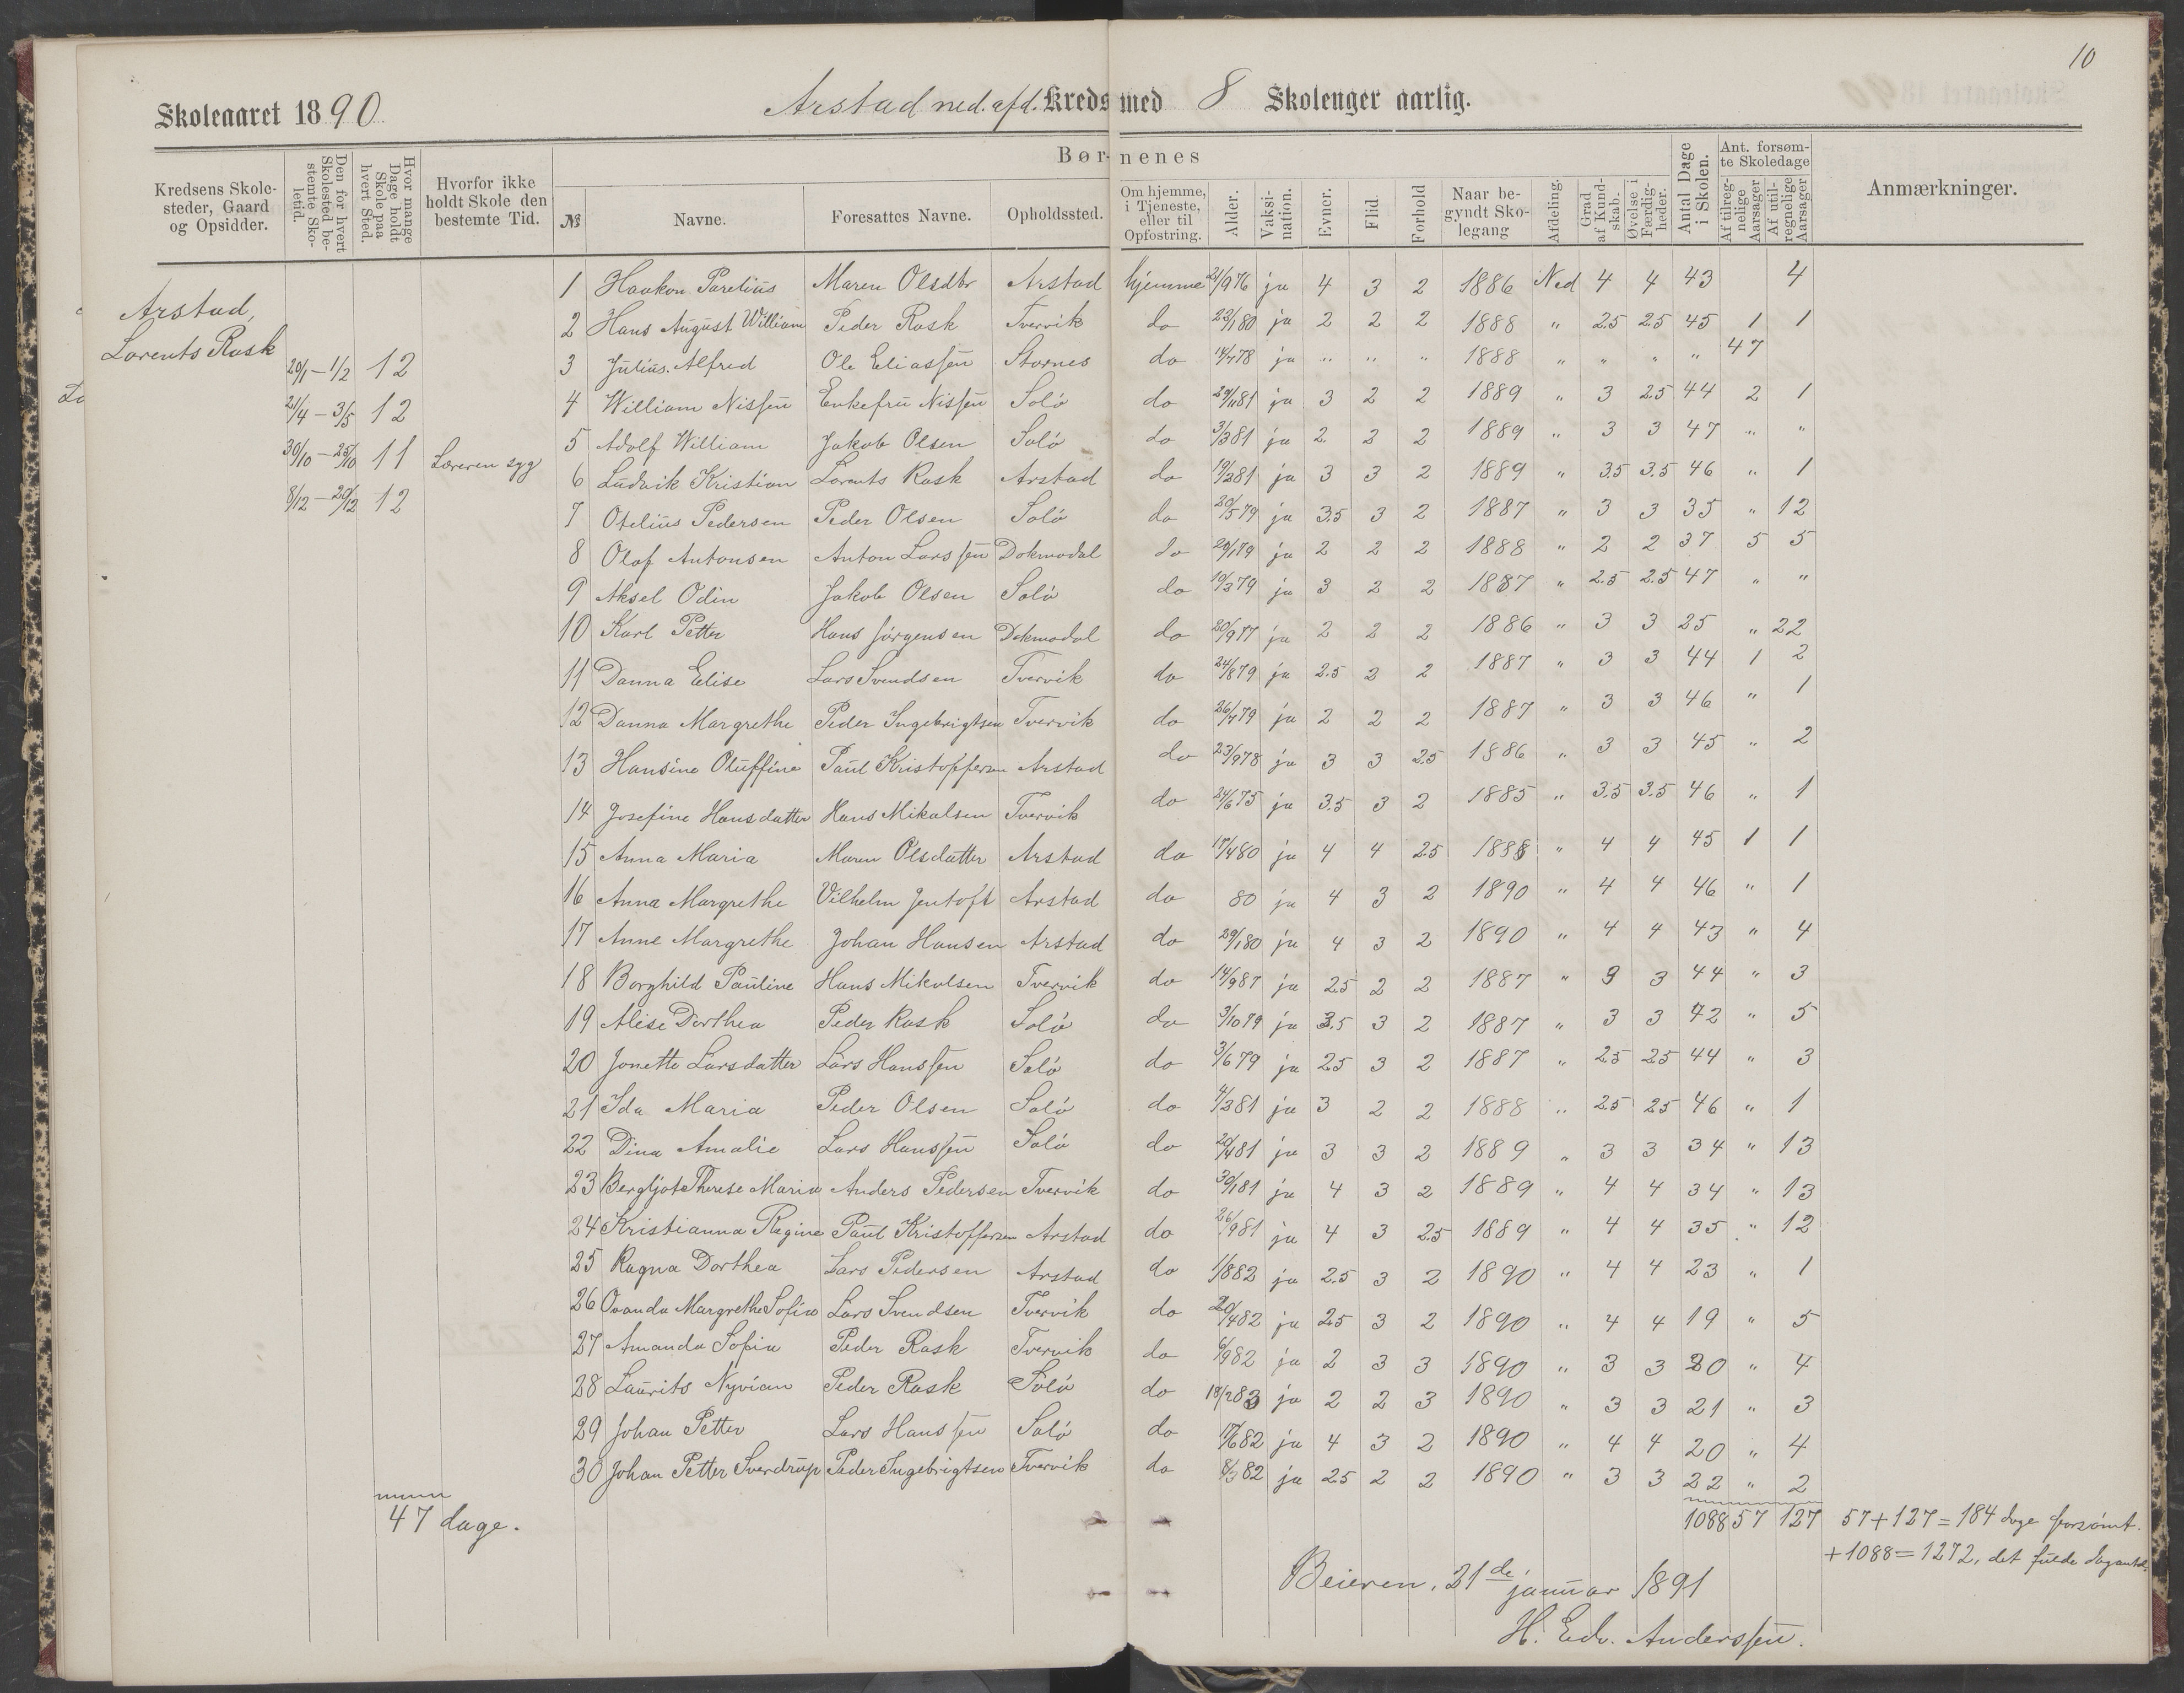 10
Skoleaaret 1890. Arstad ned. afd. Kreds med 8 Skolenger aarlig.
Kredsens Skolesteder, Gaard og Opsidder.
Den for hvert Skolested bestemte Skoletid.
Hvor mange Dage holdt Skole paa hvert Sted.
Hvorfor ikke holdt Skole den bestemte Tid.
Børnenes
№ Navne. Foresattes Navne. Opholdssted. Om hjemme, i Tjeneste, eller til Opfostring. Alder. Vaksination. Evner. Flid. Forhold Naar begyndt Skolegang Afdeling. Grad af Kundskab. Øvelse i Færdigheder. Antal Dage i Skolen. Ant. forsømte Skoledage Af tilregnelige Aarsager Af utilregnelige Aarsager
Anmærkninger.
Arstad,
Lorents Rask
20/1 – 1/2 12
21/4 – 3/5 12
30/10 – 25/10 11 Læreren syg
8/12 – 20/12 12
1 Haakon Parelius Maren Olsdtr Arstad hjemme 21/9 76 ja 4 3 2 1886 Ned 4 4 43 4
2 Hans August William Peder Rask Tvervik do 22/1 80 ja 2 2 2 1888 " 2.5 2.5 45 1 1
3 Julius. Alfred Ole Eliassen Stornes do 14/7 78 ja " " " 1888 " " " " 47
4 William Nissen Enkefru Nissen Solö do 29/11 81 ja 3 2 2 1889 " 3 2.5 44 2 1
5 Adolf William Jakob Olsen Solö do 3/3 81 ja 2. 2 2 1889 " 3 3 47 " "
6 Ludvik Kristian Lorents Rask Arstad do 19/2 81 ja 3 3 2 1889 " 3.5 3.5 46 " 1
7 Otelius Pedersen Peder Olsen Solö do 20/5 79 ja 3.5 3 2 1887 " 3 3 35 " 12
8 Olaf Antonsen Anton Larssen Dokmodal do 29/1 79 ja 2 2 2 1888 " 2 2 37 5 5
9 Aksel Odin Jakob Olsen Solö do 19/3 79 ja 3 2 2 1887 " 2.5 2.5 47 " "
10 Karl Petter Hans Jörgensen Dokmodal do 20/9 77 ja 2 2 2 1886 " 3 3 25 " 22
11 Danna Elise Lars Svendsen Tvervik do 24/8 79 ja 2.5 2 2 1887 " 3 3 44 1 2
12 Danna Margrethe Peder Ingebrigtsen Tvervik do 26/7 79 ja 2 2 2 1887 " 3 3 46 " 1
13 Hansine Oluffine Paul Kristoffersen Arstad do 23/9 78 ja 3 3 2.5 1886 " 3 3 45 " 2
14 Josefine Hansdatter Hans Mikalsen Tvervik do 24/6 75 ja 3.5 3 2 1885 " 3.5 3.5 46 " 1
15 Anna Maria Maren Olsdatter Arstad do 17/4 80 ja 4 4 2.5 1888 " 4 4 45 1 1
16 Anna Margrethe Vilhelm Jentoft Arstad do 80 ja 4 3 2 1890 " 4 4 46 " 1
17 Anne Margrethe Johan Hansen Arstad do 29/1 80 ja 4 3 2 1890 " 4 4 43 " 4
18 Borghild Pauline Hans Mikalsen Tvervik do 14/9 87 ja 2.5 2 2 1887 " 3 3 44 " 3
19 Alise Dorthea Peder Rask Solö do 3/10 79 ja 3.5 3 2 1887 " 3 3 42 " 5
20 Jonette Larsdatter Lars Hanssen Solö do 3/6 79 ja 2.5 3 2 1887 " 2.5 2.5 44 " 3
21 Ida Maria Peder Olsen Solö do 4/3 81 ja 3 2 2 1888 " 2.5 2.5 46 " 1
22 Dina Amalie Lars Hanssen Solö do 20/4 81 ja 3 3 2 1889 " 3 3 34 " 13
23 Bergljot Therese Maria Anders Pedersen Tvervik do 30/1 81 ja 4 3 2 1889 " 4 4 34 " 13
24 Kristianna Regine Paul Kristoffersen Arstad do 26/9 81 ja 4 3 2.5 1889 " 4 4 35 " 12
25 Ragna Dorthea Lars Pedersen Arstad do 1/8 82 ja 2.5 3 2 1890 " 4 4 23 " 1
26 Ovanda Margrethe Sofia Lars Svendsen Tvervik do 20/4 82 ja 2.5 3 2 1890 " 4 4 19 " 5
27 Amanda Sofia Peder Rask Tvervik do 6/9 82 ja 2 3 3 1890 " 3 3 20 " 4
28 Laurits Nyvian Peder Rask Solö do 18/2 83 ja 2 2 3 1890 " 3 3 21 " 3
29 Johan Petter Lars Hanssen Solö do 17/6 82 ja 4 3 2 1890 " 4 4 20 " 4
30 Johan Petter Sverdrup Peder Ingebrigtsen Tvervik do 8/3 82 ja 2.5 2 2 1890 " 3 3 22 " 2
47 dage. 1088 57 127 57 + 127 = 184 dage forsömt.
+ 1088 = 1272, det fulde dagantal.
Beieren, 21de januar 1891
H. Edv. Anderssen.